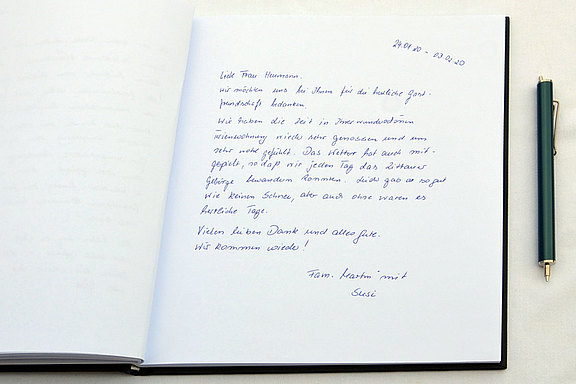 29.01.20 - 03.02.20
Liebe Frau Heumann,
wir möchten uns bei Ihnen für die herzliche Gast-
freundschaft bedanken.
Wir haben die Zeit in Ihrer wunderschönen
Ferienwohnung wieder sehr genossen und uns
sehr wohl gefühlt. Das Wetter hat auch mit-
gespielt, so daß wir jeden Tag das Zittauer
Gebirge bewandern konnten. Leider gab es so gut
wie keinen Schnee, aber auch ohne waren es
herrliche Tage.
Vielen lieben Dank und alles Gute.
Wir kommen wieder!
Fam. Martin mit
Susi